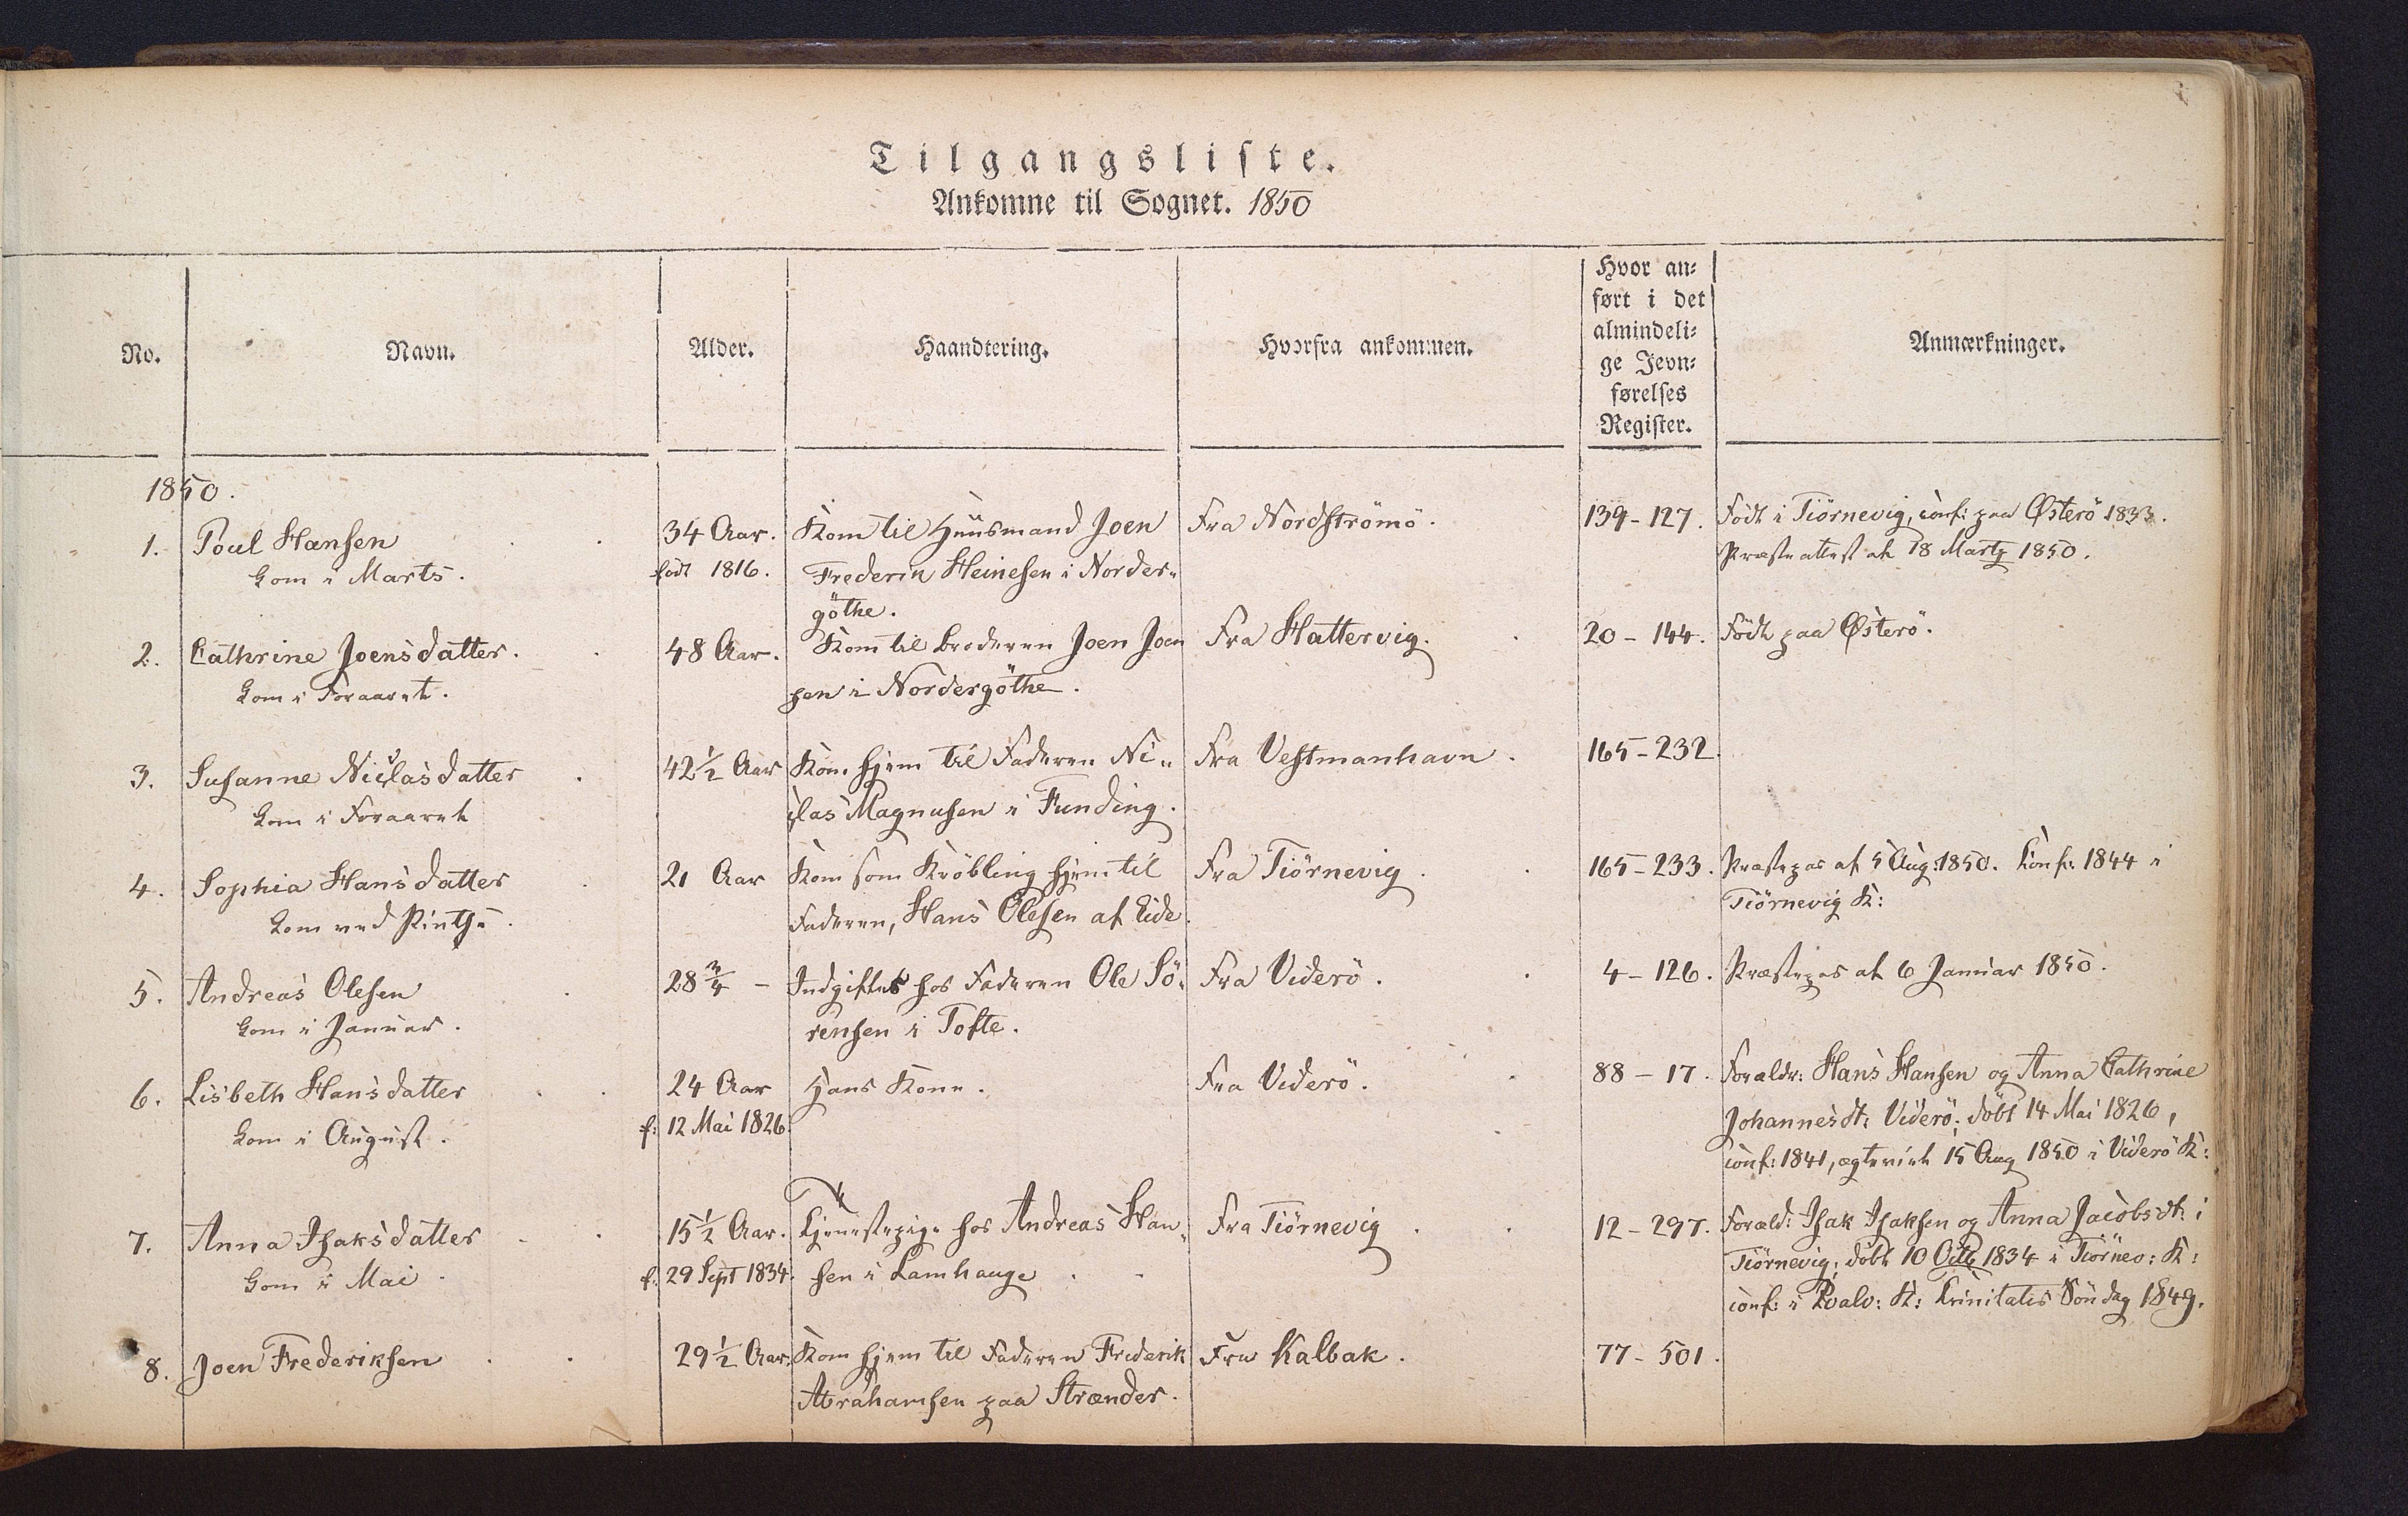 Tilgangsliste.
Ankomne til Sognet. 1850
No.
Navn.
Alder.
Haandtering.
Hvorfra ankommen.
Hvor an=
ført i det
almindeli=
ge Jevn=
førelses
Register.
Anmærkninger.
1850.
1. Poul Hansen
kom i Marts.
34 Aar.
født 1816.
Kom til Huusmand Joen
Frederin Heinesen i Norder„
göthe.
Fra Nordströmö.
139-127.
Födt i Tiörnevig, conf: paa Österö 1833.
Præsteattest af 18 Marts 1850.
2. Cathrine Joensdatter.
kom i Foraaret.
48 Aar.
Kom til Broderen Joen Joen
sen i Nordergöthe.
Fra Hattervig.
20-144.
Födt paa Österö.
3. Susanne Niclasdatter
kom i Foraaret
42 1/2 Aar
Kom hjem til Faderen Ni„
clas Magnusen i Funding.
Fra Vestmanhavn.
165-232.
4. Sophia Hansdatter
kom ved Pintse.
21 Aar
Kom som Kröbling hjem til
Faderen, Hans Olesen af Eide.
Fra Tiörnevig.
165-233.
Præstepas af 5 Aug: 1850. Conf: 1844 i
Tiörnevig K:
5. Andreas Olesen
kom i Januar.
28 3/4 -
Indgiftes hos Faderen Ole Sö„
rensen i Tofte.
Fra Viderö.
4-126.
Præstepas af 6 Januar 1850.
6. Lisbeth Hansdatter
kom i August.
24 Aar
f: 12 Mai 1826.
Hans Kone.
Fra Viderö.
88-17.
Forældr: Hans Hansen og Anna Cathrine
Johannesdt: Viderö; döbt 14 Mai 1826,
conf: 1841, ægteviet 15 Aug 1850 i Viderö K:
7. Anna Isaksdatter
kom i Mai.
15 1/2 Aar.
f: 29 Sept 1834.
Tjenestepige hos Andreas Han„
sen i Lamhauge.
Fra Tiörnevig
12-297.
Foræld: Isak Isaksen og Anna Jacobsdt: i
Tiörnevig, döbt 10 Octb 1834 i Tiörnev: K:
conf: i Qvalv: K: Trinitatis Söndag 1849.
8. Joen Frederiksen
29 1/2 Aar.
Kom hjem til Faderen Frederik
Abrahamsen paa Strænder.
Fra Kalbak.
77-501.